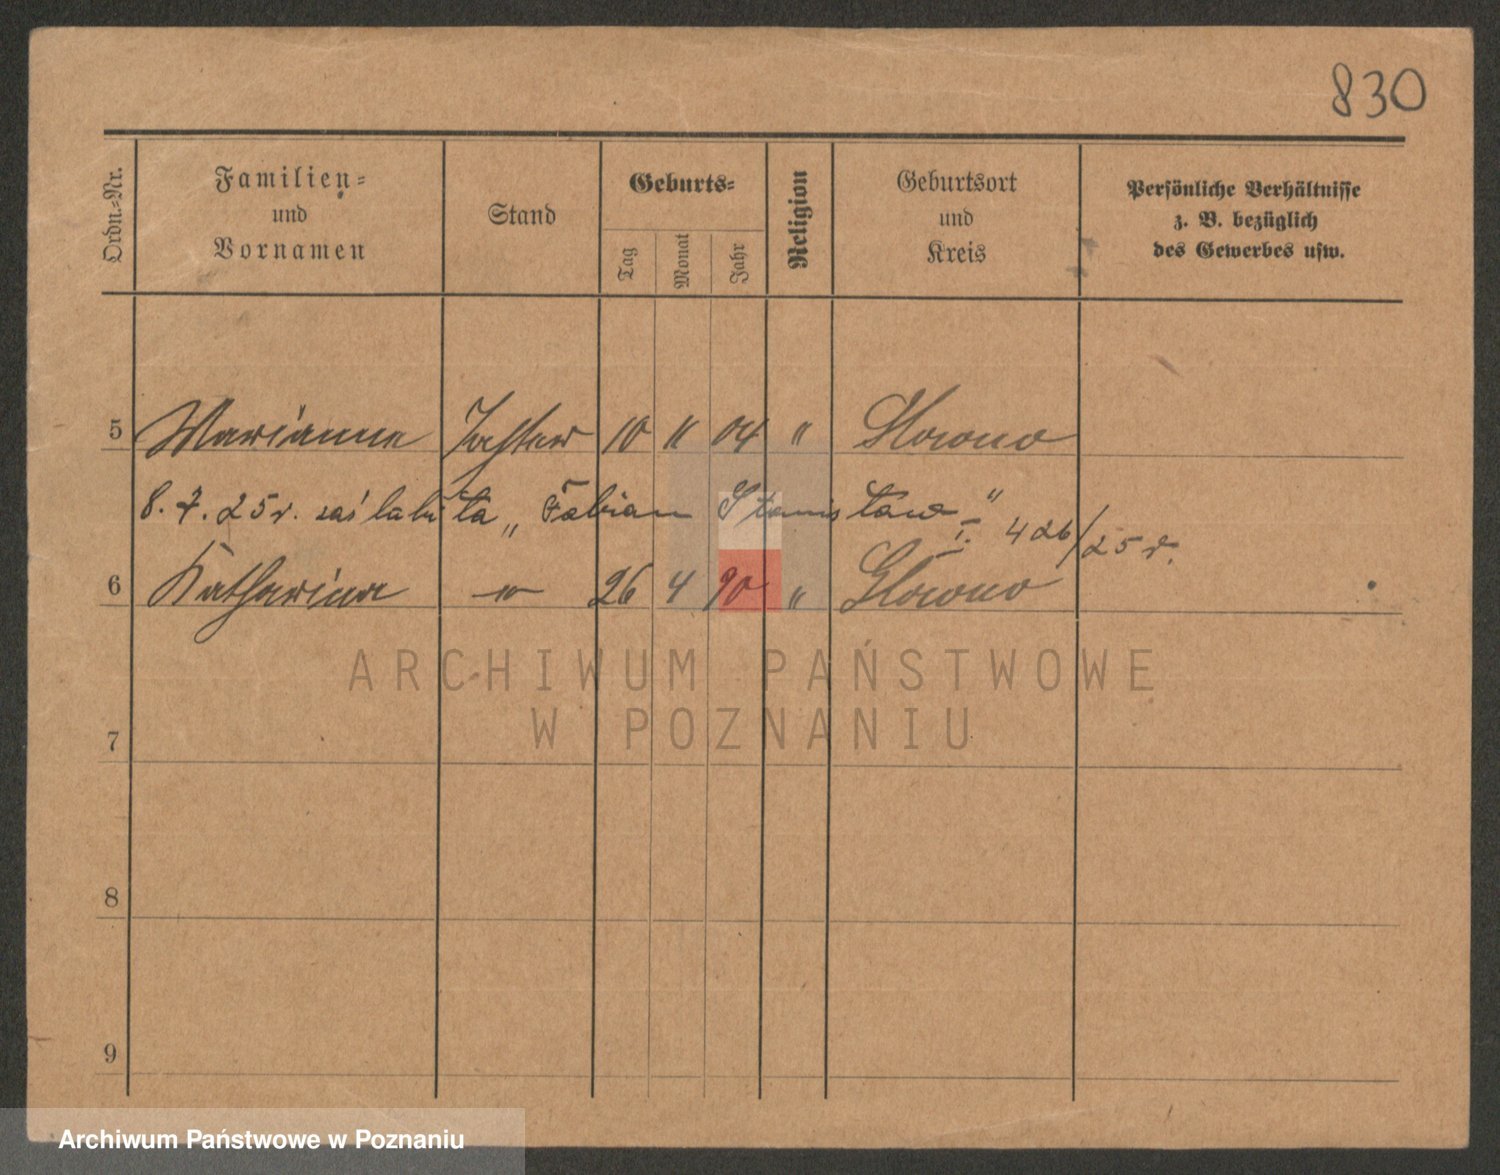 830
Ordn.-Nr.
Familien-
und
Vornamen
Stand
Geburts-
Tag
Monat
Jahr
Religion
Geburtsort
und
Kreis
Persönliche Verhältnisse
z. B. bezüglich
des Gewerbes usw.
5 Marianne Tochter 10 11 04 "
8. 7. 25 r. zaślubiła „Fabian Stanisław" 426/25 r.
6 Katharina " 26 4 90 " Głowno
ARCHIWUM PAŃSTWOWE
W POZNANIU
7
8
9
Archiwum Państwowe w Poznaniu